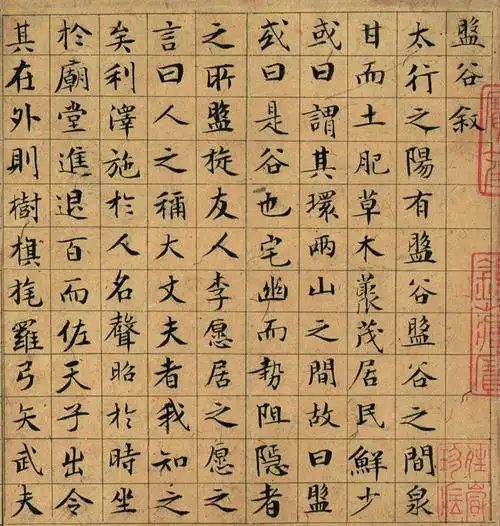 盤谷叙
太行之陽有盤谷盤谷之間泉
甘而土肥草木藂茂居民鮮少
或曰謂其環兩山之間故曰盤
或曰是谷也宅幽而勢阻隱者
之所盤旋友人李愿居之愿之
言曰人之稱大丈夫者我知之
矣利澤施於人名聲昭於時坐
於廟堂進退百而佐天子出令
其在外則樹旗旄羅弓矢武夫